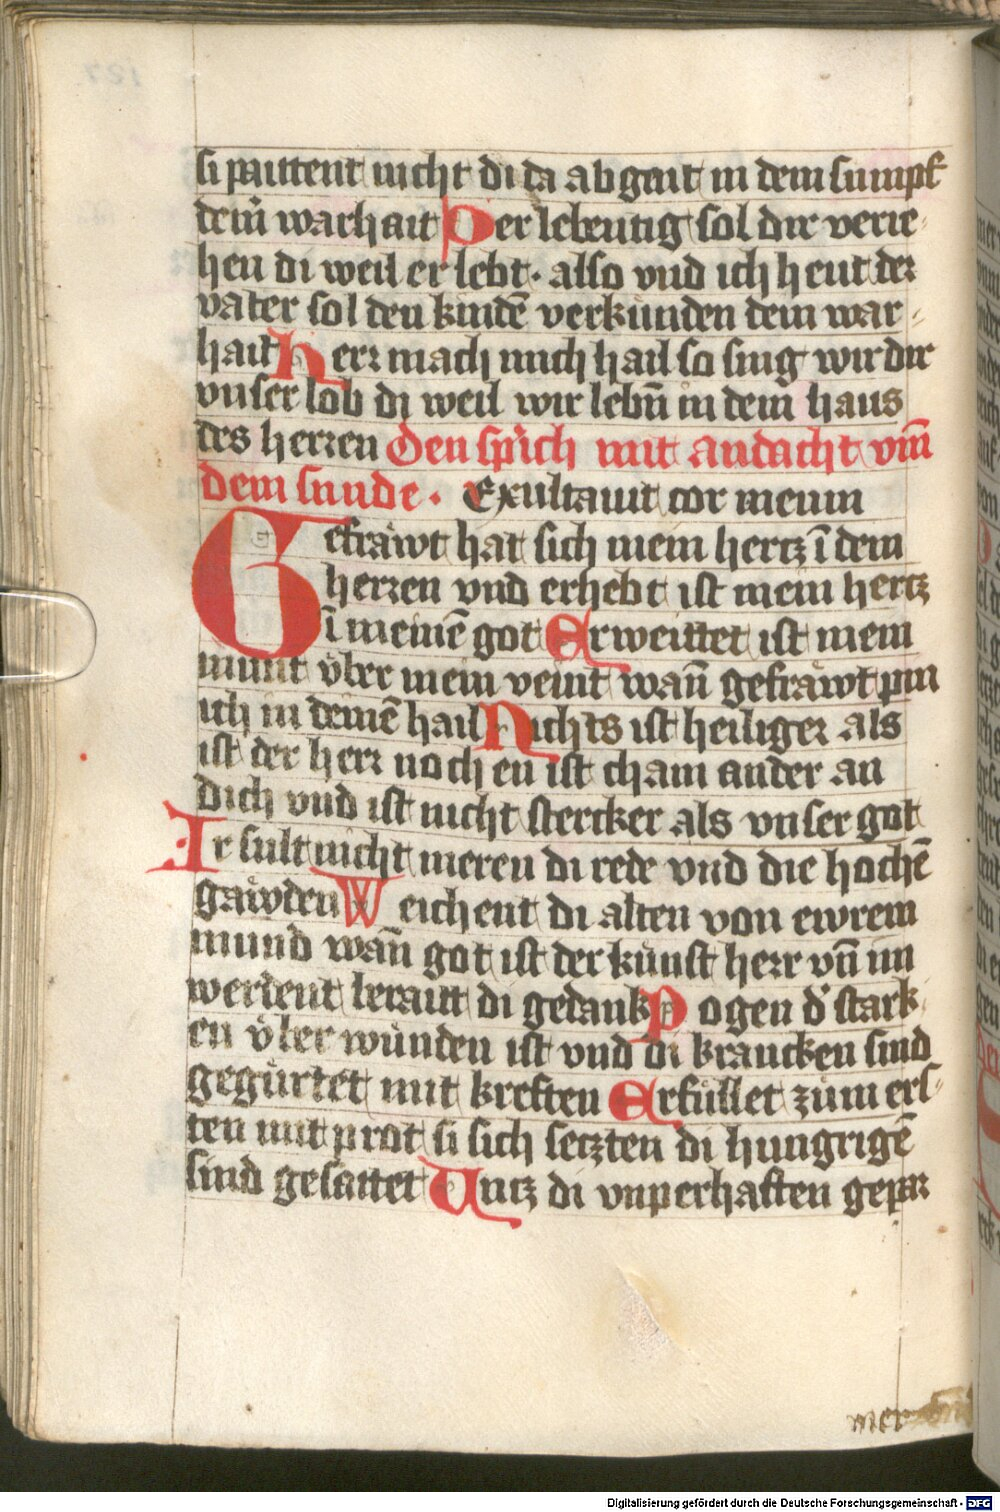 si paittent nicht di da ab gant in dem sumpf
deinr̄ warhait Der lebentig sol dir verie-
hen di weil er lebt · also vnd ich heut der
vater sol den kindē verkunden dein war-
hait Herr mach mich hail so sing wir dir
vnser lob di weil wir lebn̄ in dem haus
des herren Den sprich mit andacht vm̄
dein sunde · Exultauit cor meum
Gefräwt hat sich mein hertz ī dem
herren vnd erhebt ist mein hertz
ī meinē got Erweittet ist mein
munt vͤber mein veint wan̄ gefräwt pin
ich in deinē hail Nichts ist heiliger als
ist der herr noch en ist chain ander an
dich vnd ist nicht stercker als vnser got
Ir sult nicht meren di rede vnd die hochē
gaẅden Weichent di alten von ewrem
mund wan̄ got ist der kunst herr vn̄ im
werdent beraitt di gedank Pogen d' stark-
en vͤber wunden ist vnd di krancken sind
gegürtet mit kreften Erfüllet zum ers-
ten mit prot si sich setzten di hungrigē
sind gesattet Untz di vnperhaften gepar
mer
Digitalisierung gefördert durch die Deutsche Forschungsgemeinschaft - DFG